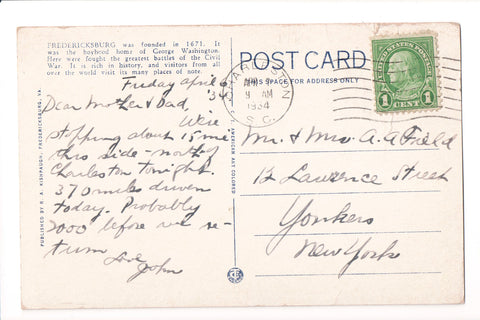 FREDERICKSBURG was founded in 1671. It
was the boyhood home of George Washington.
Here were fought the greatest battles of the Civil
War. It is rich in history, and visitors from all
over the world visit its many places of note.
Friday April 6
'34
Dear Mother & Dad,
We're
stopping about 15 mi
this side - north of
Charleston tonight.
370 miles driven
today. Probably
2000 before we re-
turn
Love
John
PUBLISHED BY R. A. KISHPAUGH, FREDERICKSBURG, VA.
AMERICAN ART COLORED
POST CARD
THIS SPACE FOR ADDRESS ONLY
CHARLESTON
APR 7
9 AM
1934
S.C.
UNITED STATES POSTAGE
1 CENT 1
Mr. & Mrs. A. A. Field
12 Lawrence Street
Yonkers
New York